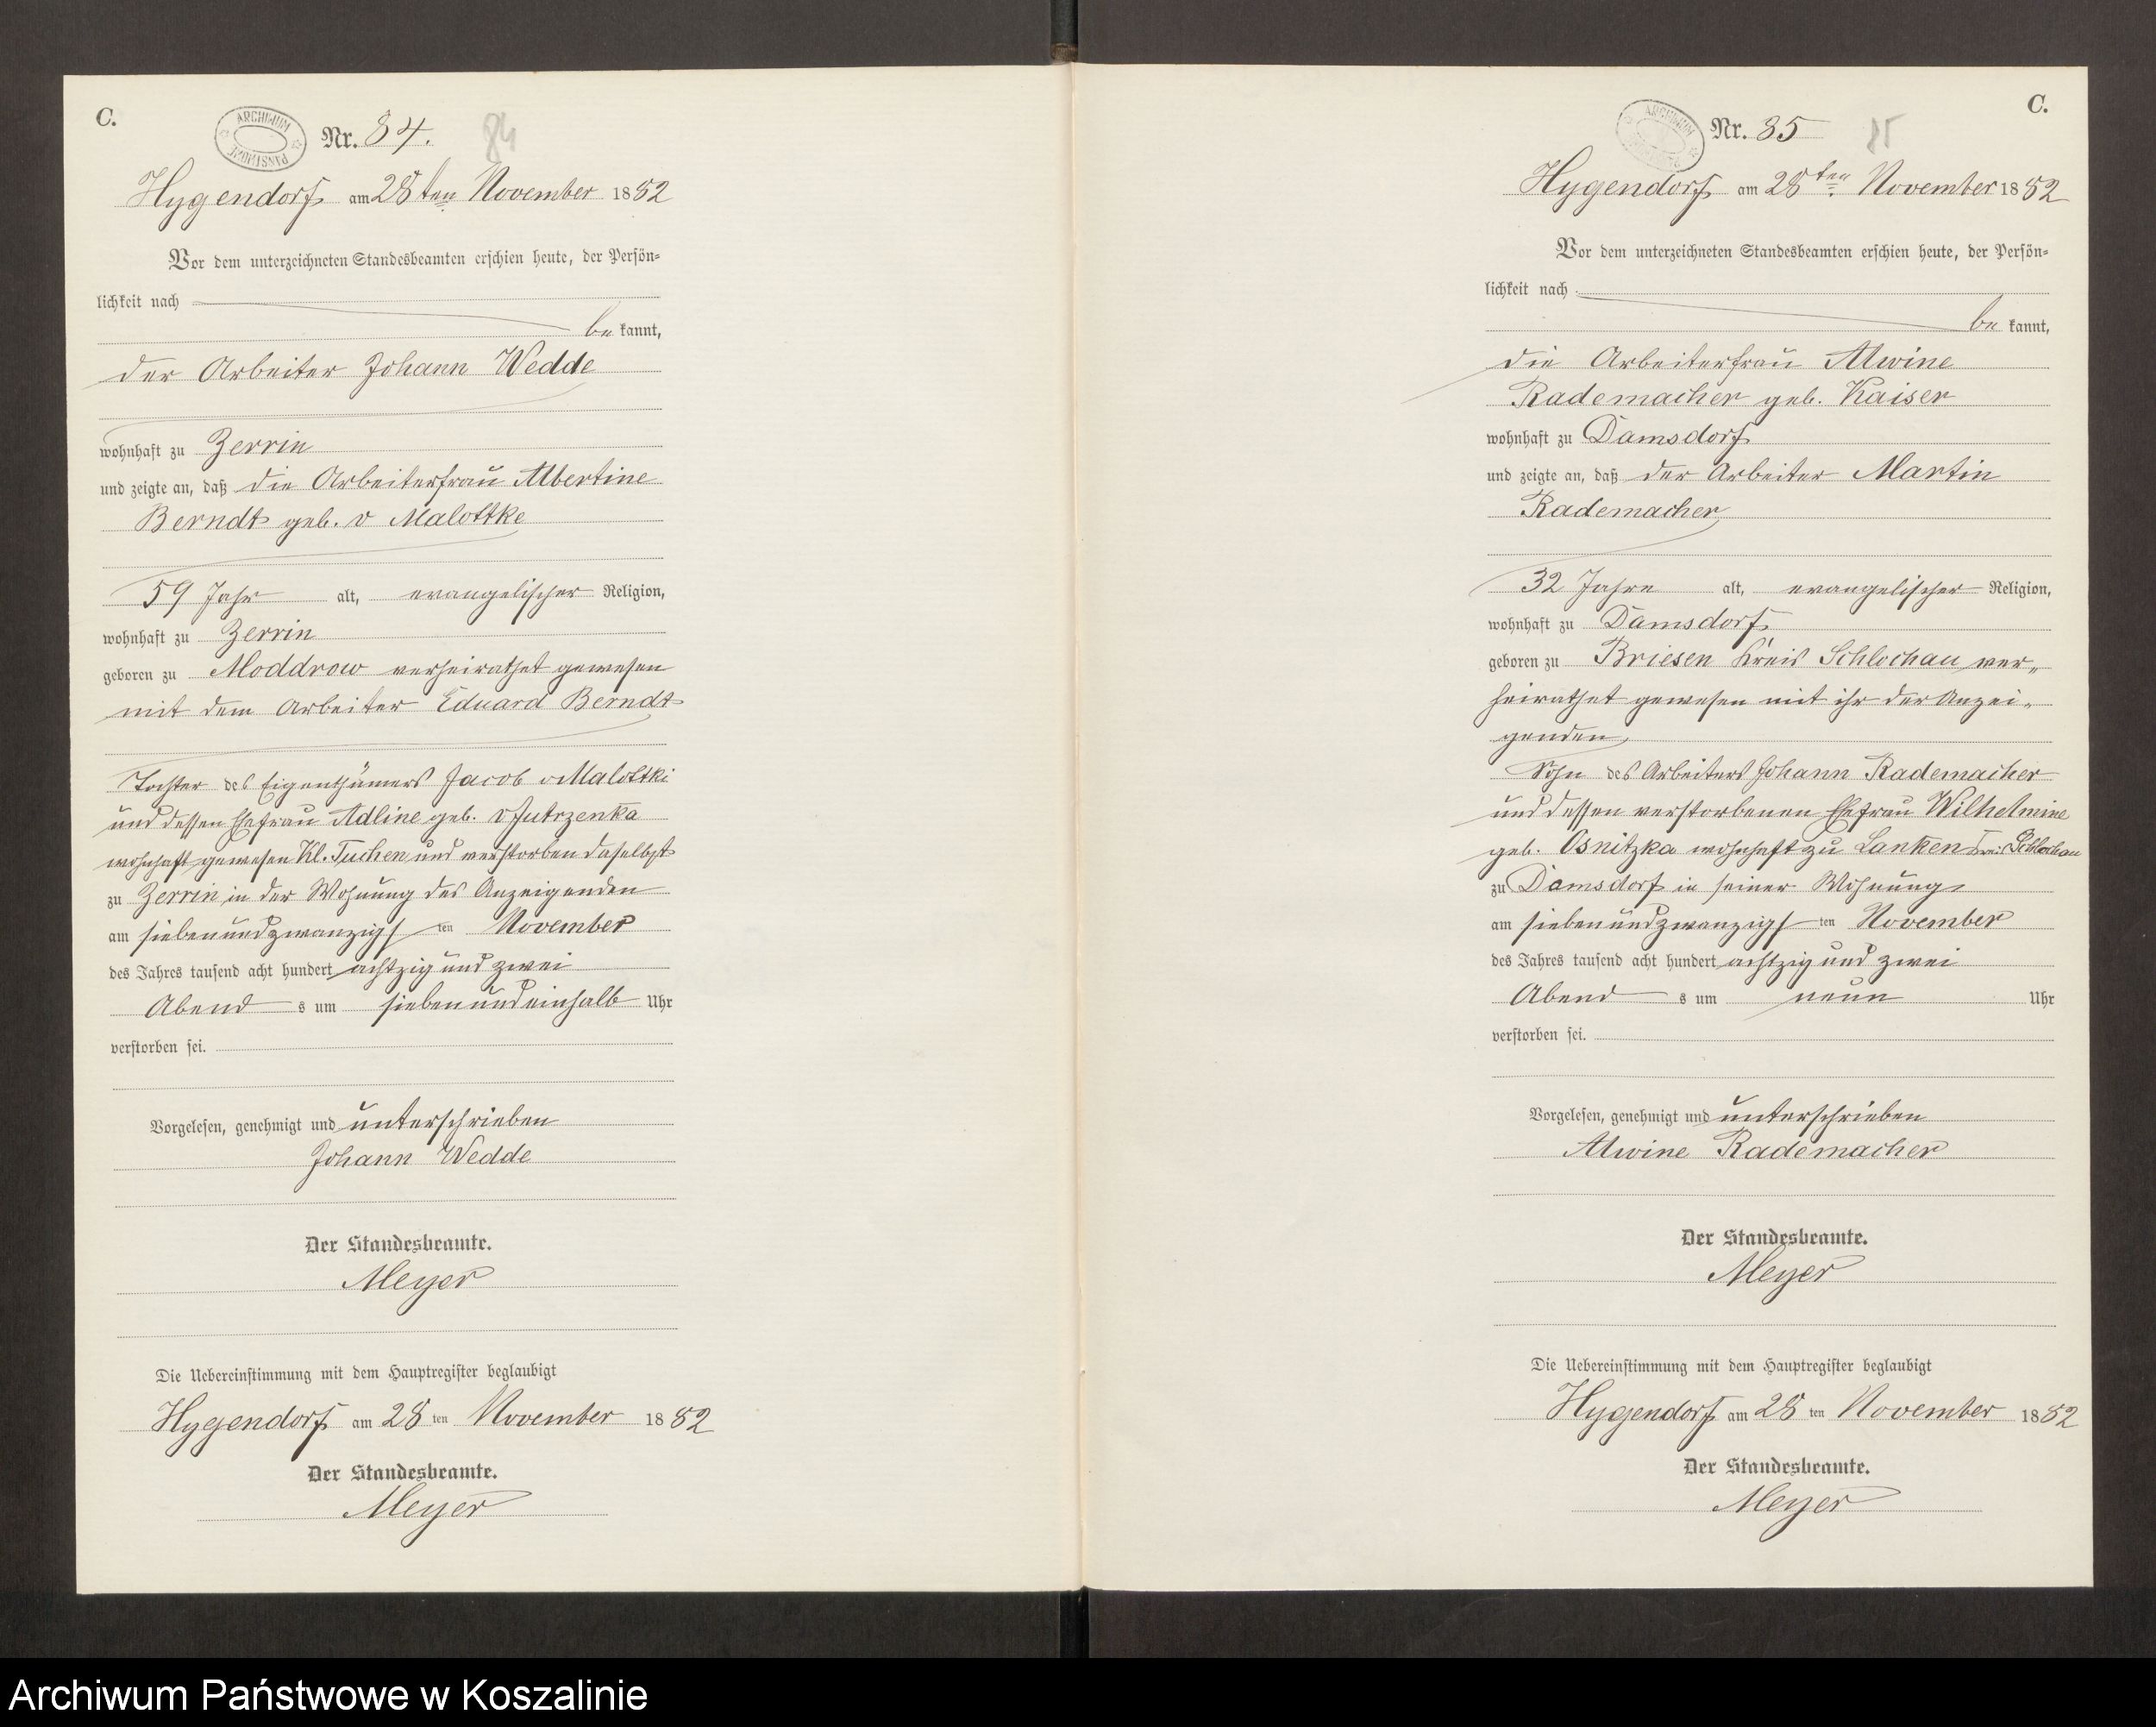 C.
ARCHIWUM PAŃSTWOWE
Nr. 84. 84
Hygendorf am 28ten November 1882
Vor dem unterzeichneten Standesbeamten erschien heute, der Persön-
lichkeit nach
be kannt,
der Arbeiter Johann Wedde
wohnhaft zu Zerrin
und zeigte an, daß die Arbeiterfrau Albertine
Berndt geb. v Malottke
59 Jahr alt, evangelischer Religion,
wohnhaft zu Zerrin
geboren zu Moddrow verheirathet gewesen
mit dem Arbeiter Eduard Berndt
Tochter des Eigenthümers Jacob v Malottki
und dessen Ehefrau Adline geb. v Jutrzenka
wohnhaft gewesen Kl. Tuchen und verstorben daselbst
zu Zerrin in der Wohnung des Anzeigenden
am siebenundzwanzigsten November
des Jahres tausend acht hundert achtzig und zwei
Abend s um sieben und einhalb Uhr
verstorben sei.
Vorgelesen, genehmigt und unterschrieben
Johann Wedde
Der Standesbeamte.
Meyer
Die Uebereinstimmung mit dem Hauptregister beglaubigt
Hygendorf am 28 ten November 1882
Der Standesbeamte.
Meyer
C.
ARCHIWUM
Nr. 85 85
Hygendorf am 28ten November 1882
Vor dem unterzeichneten Standesbeamten erschien heute, der Persön-
lichkeit nach
be kannt,
die Arbeiterfrau Alwine
Rademacher geb. Kaiser
wohnhaft zu Damsdorf
und zeigte an, daß der Arbeiter Martin
Rademacher
32 Jahre alt, evangelischer Religion,
wohnhaft zu Damsdorf
geboren zu Briesen Kreis Schlochau ver-
heirathet gewesen mit ihr der Anzei-
genden,
Sohn des Arbeiters Johann Rademacher
und dessen verstorbenen Ehefrau Wilhelmine
geb. Osnitzka wohnhaft zu Lanken Kreis Schlochau
zu Damsdorf in seiner Wohnung
am siebenundzwanzigsten November
des Jahres tausend acht hundert achtzig und zwei
Abend s um neun Uhr
verstorben sei.
Vorgelesen, genehmigt und unterschrieben
Alwine Rademacher
Der Standesbeamte.
Meyer
Die Uebereinstimmung mit dem Hauptregister beglaubigt
Hygendorf am 28 ten November 1882
Der Standesbeamte.
Meyer
Archiwum Państwowe w Koszalinie